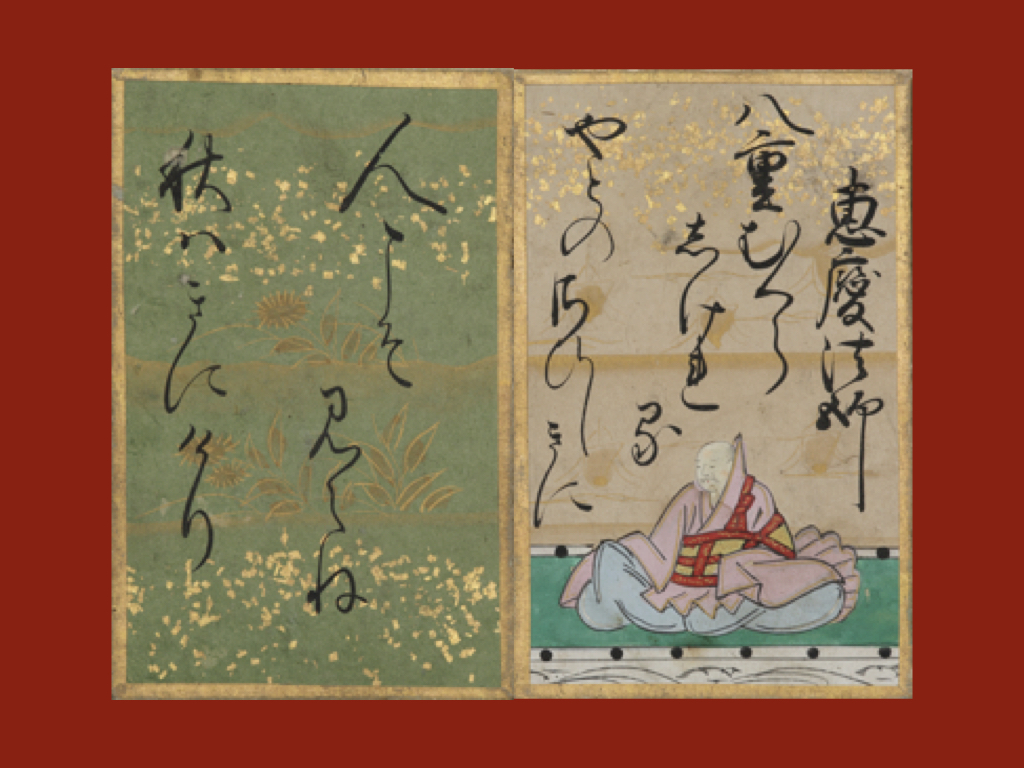 恵慶法師
八重むくら
しけれ
る
やとのさひしきに
人こそ
見えね
秋はきにけり